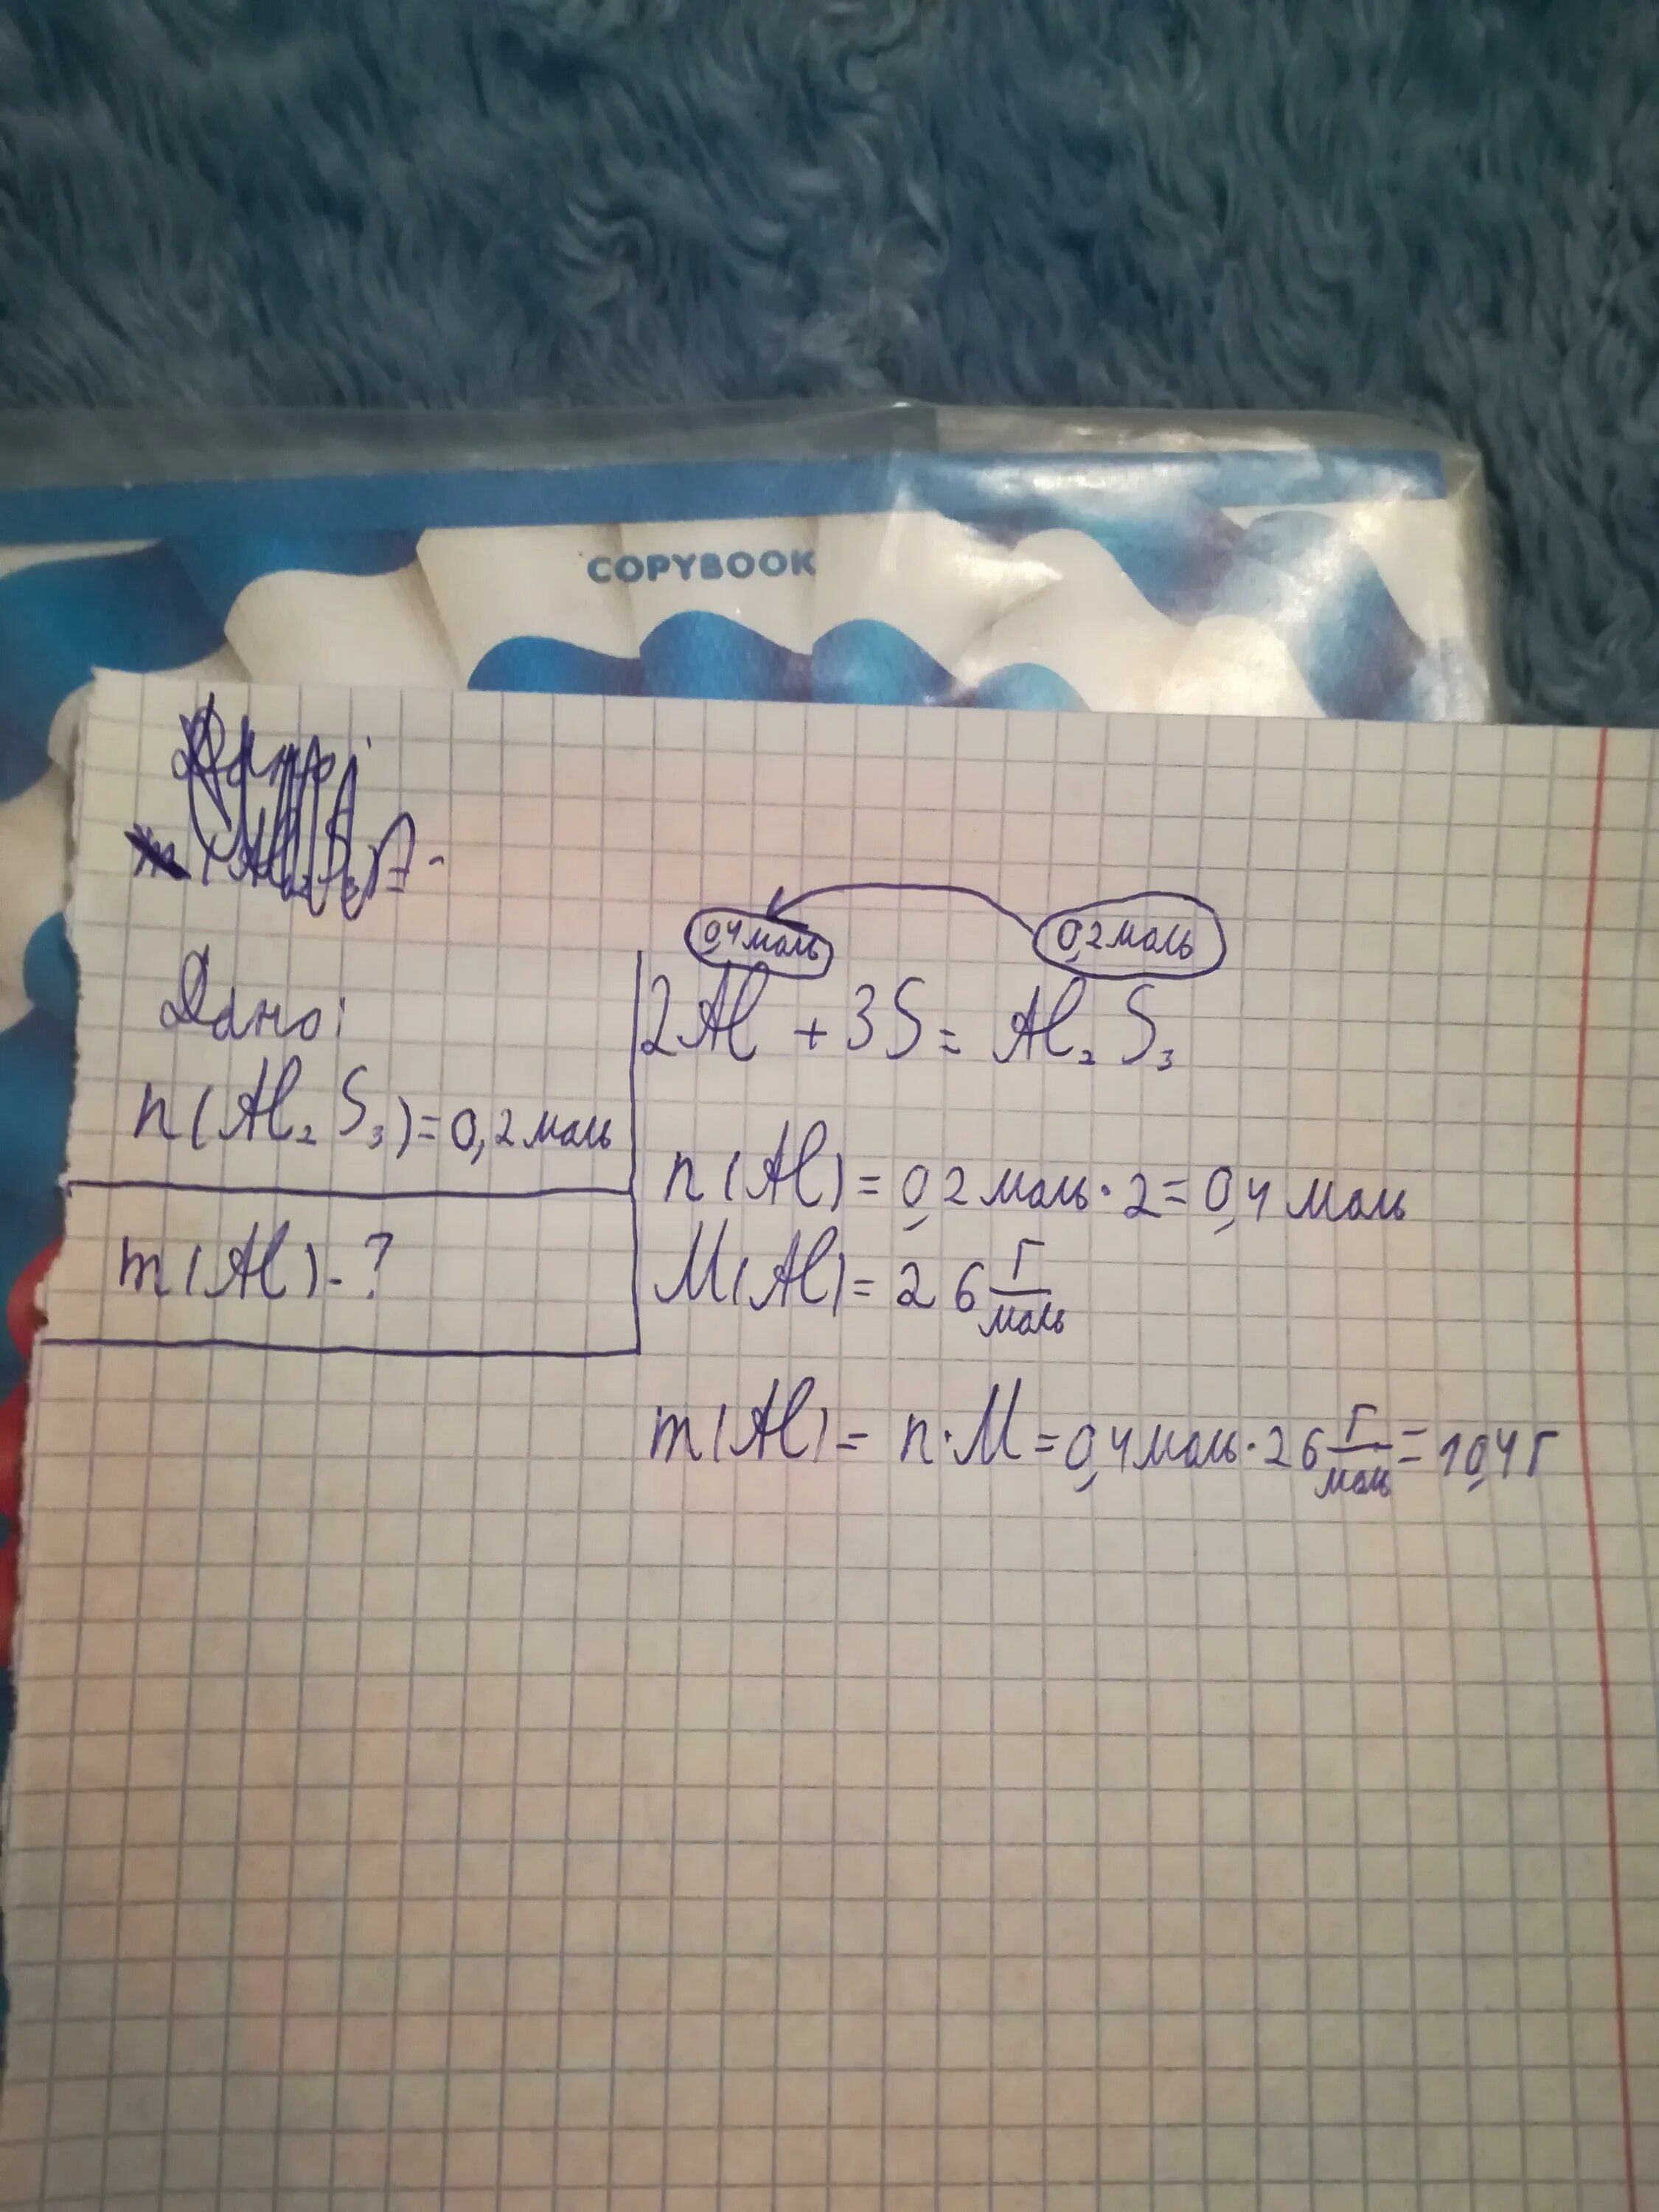 COPYBOOK
Дано:
n(Al₂S₃)=0,2моль
m(Al)-?
0,4моль 0,2моль
2Al + 3S = Al₂S₃
n(Al)=0,2моль·2=0,4моль
M(Al)=26 г/моль
m(Al)= n·M=0,4моль·26 г/моль=10,4г